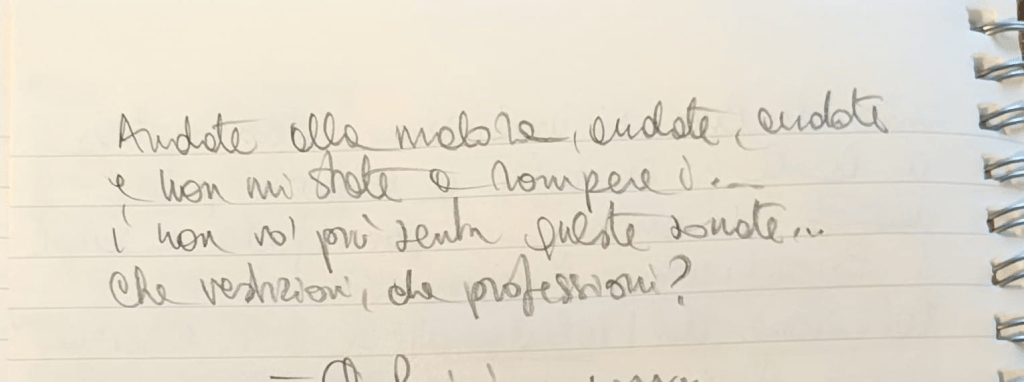 Andate alla malora, andate, andate
e non mi state a rompere i...
i' non vo' più sentir queste sonate...
Che vestizioni, che professioni?